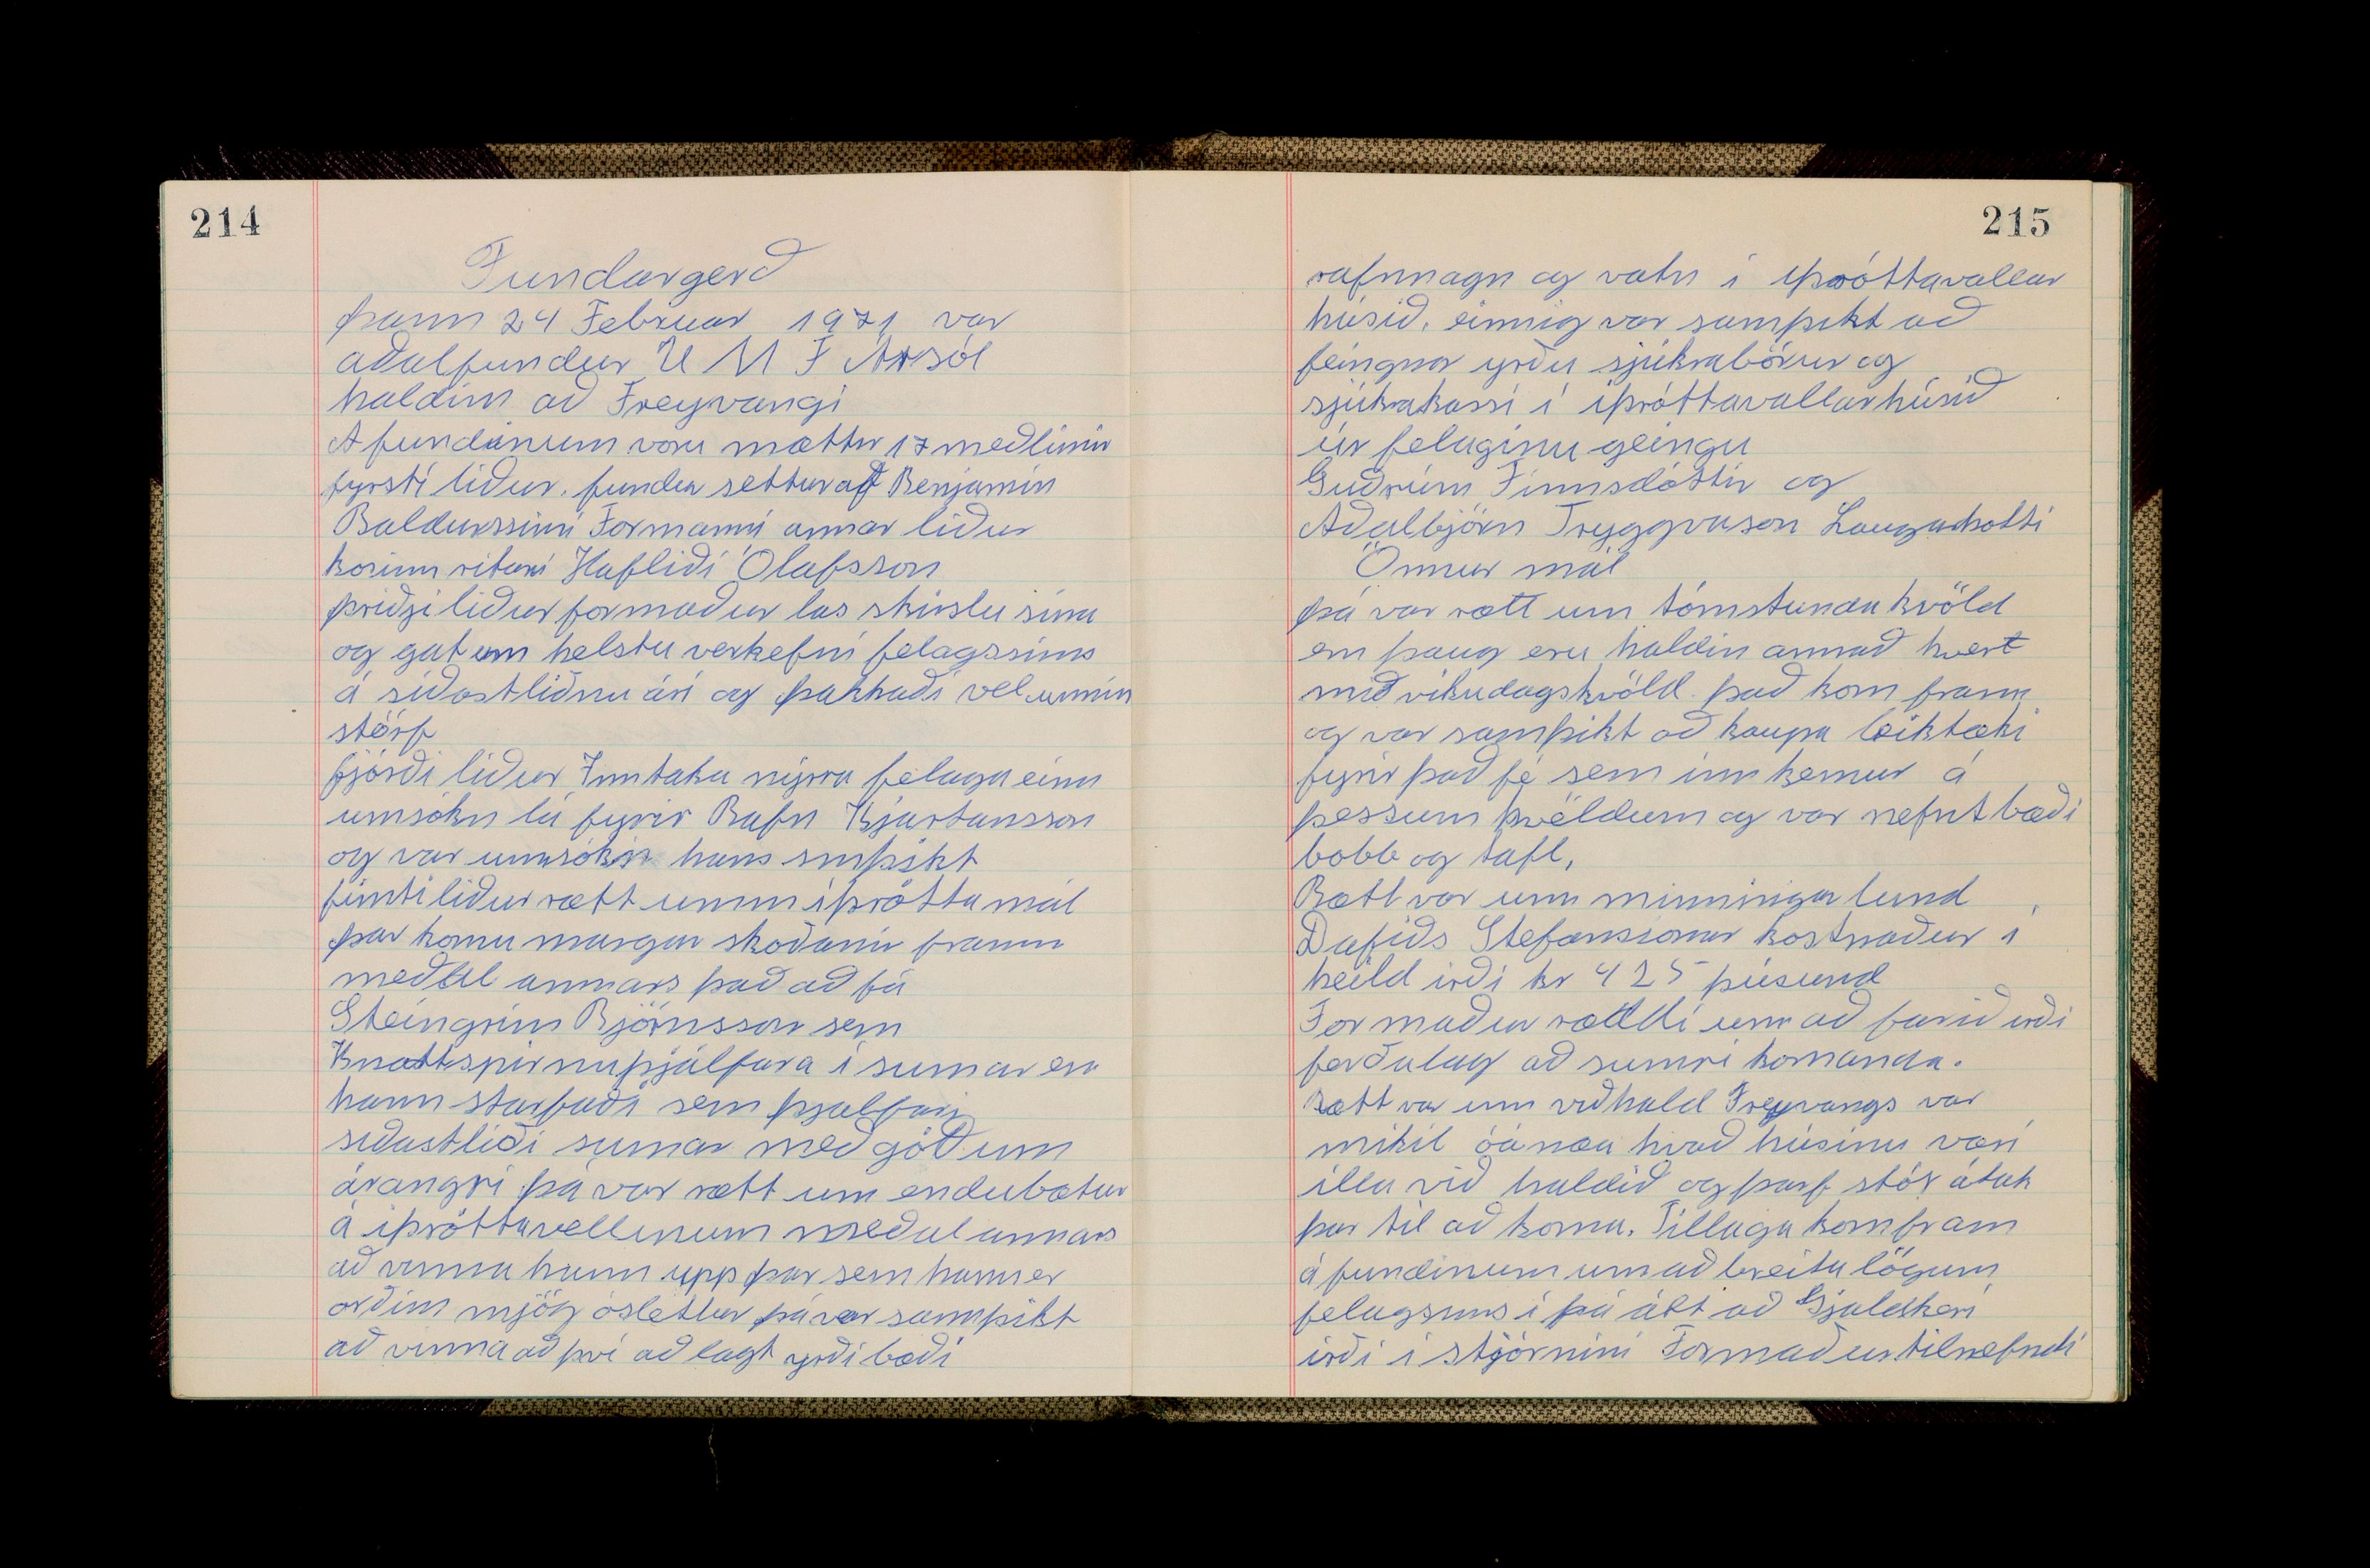 214
Fundargerð
þann 24 Febrúar 1971 var
aðalfundur U M F Ársól
haldinn að Freyvangi
A fundinum voru mættir 17 meðlimir
fyrsti liður. fundur settur af Benjamín
Baldurssini Formanni annar liður
kosinn ritari Hafliði Ólafsson
þriðji liður formaður las skírslu sína
og gat um helstu verkefni felagssins
á síðastliðnu ári og þakkaði vel unnin
störf
fjórði liður Inntaka nýrra felaga einn
umsókn lá fyrir Rafn Kjartansson
og var umsókn hans smþikt
fimti liður rætt umm íþrótta mál
þar komu margar skoðanir framm
meðal annars það að fá
Steingrím Björnsson sem
Knattspirnuþjálfara í sumar en
hann starfaði sem þjalfari
síðastliði sumar með góðum
árangri þá var rætt um endubætur
á íþróttavellinum meðal annars
að vinna hann upp þar sem hann er
orðinn mjög óslettur þá var samþikt
að vinna að því að lagt yrði bæði
215
rafmagn og vatn í íþróttavallar
húsið. einnig var samþikt að
feingnar yrðu sjúkrabörur og
sjúkrakassi í íþróttavallarhúsið
úr felaginu geingu
Guðrún Finnsdóttir og
Aðalbjörn Tryggvason Laugarholti
Önnur mál
þá var rætt um tómstunda kvöld
em þaug eru haldin annað hvert
miðvikudagskvöld það kom fram
og var samþikt að kaupa leiktæki
fyrir það fé sem inn kemur á
þessum kvöldum og var nefnt bæði
bobb og tafl,
Rætt var um minningar lund
Dafiðs Stefanssonar kostnaður í
heild irði kr 425 þúsund
Formaður ræddi um að farið irði
ferðalag að sumri komanda.
Rætt var um viðhald Freyvangs var
mikil óánæa hvað húsinu væri
illa við haldið og þarf stór átak
þar til að koma. Tillaga kom fram
á fundinum um að breita lögum
felagsins í þá átt að Gjaldkeri
irði í stjórnini Formaður tilnefndi